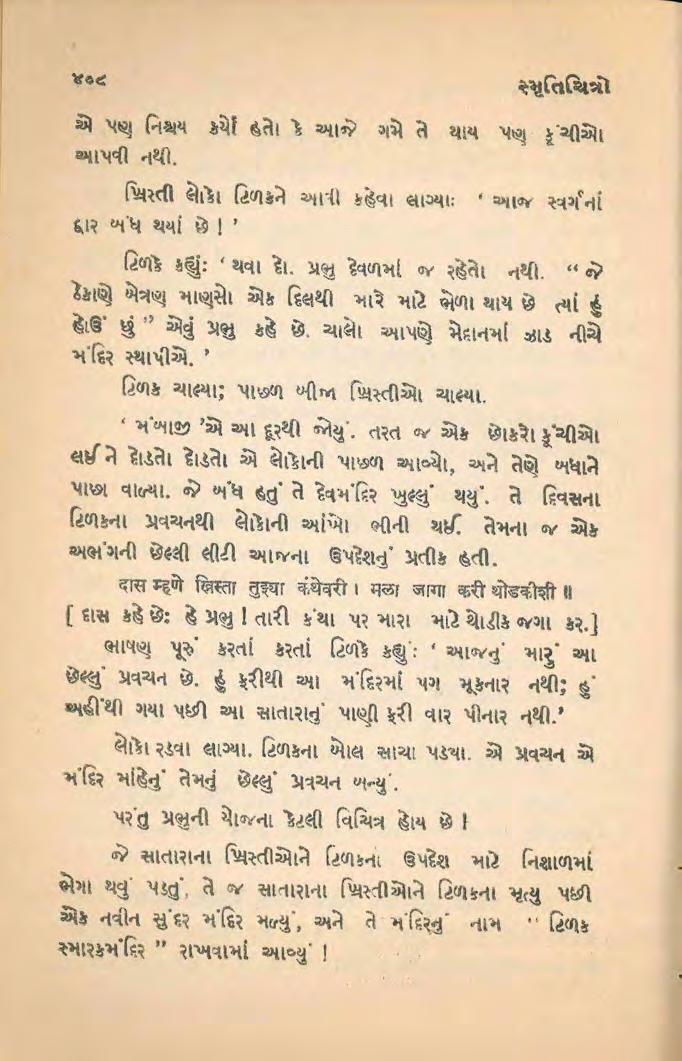 ૪૦૮
સ્મૃતિચિત્રો
એ પણ નિશ્ચય કર્યો હતો કે આજે ગમે તે થાય પણ કૂંચીઓ
આપવી નથી.
ખ્રિસ્તી લોકો ટિળકને આવી કહેવા લાગ્યાઃ ‘ આજ સ્વર્ગનાં
દ્વાર બંધ થયાં છે ! ’
ટિળકે કહ્યુંઃ ‘ થવા દો. પ્રભુ દેવળમાં જ રહેતો નથી. “ જે
ઠેકાણે બેત્રણ માણસો એક દિલથી મારે માટે ભેળા થાય છે ત્યાં હું
હોઉં છું ” એવું પ્રભુ કહે છે. ચાલો આપણે મેદાનમાં ઝાડ નીચે
મંદિર સ્થાપીએ. ’
ટિળક ચાલ્યા; પાછળ બીજા ખ્રિસ્તીઓ ચાલ્યા.
‘ મંબાજી ’એ આ દૂરથી જોયું. તરત જ એક છોકરો કૂંચીઓ
લઈને દોડતો દોડતો એ લોકોની પાછળ આવ્યો, અને તેણે બધાને
પાછા વાળ્યા. જે બંધ હતું તે દેવમંદિર ખુલ્લું થયું. તે દિવસના
ટિળકના પ્રવચનથી લોકોની આંખો ભીની થઈ. તેમના જ એક
અભંગની છેલ્લી લીટી આજના ઉપદેશનું પ્રતીક હતી.
दास म्हणे ख्रिस्ता तुझ्या कंथेवरी । मला जागा करी थोडकीशी ॥
[ દાસ કહે છેઃ હે પ્રભુ ! તારી કંથા પર મારા માટે થોડીક જગા કર.]
ભાષણ પૂરું કરતાં કરતાં ટિળકે કહ્યુંઃ ‘ આજનું મારું આ
છેલ્લું પ્રવચન છે. હું ફરીથી આ મંદિરમાં પગ મૂકનાર નથી; હું
અહીંથી ગયા પછી આ સાતારાનું પાણી ફરી વાર પીનાર નથી.’
લોકો રડવા લાગ્યા. ટિળકના બોલ સાચા પડ્યા. એ પ્રવચન એ
મંદિર માંહેનું તેમનું છેલ્લું પ્રવચન બન્યું.
પરંતુ પ્રભુની યોજના કેટલી વિચિત્ર હોય છે !
જે સાતારાના ખ્રિસ્તીઓને ટિળકના ઉપદેશ માટે નિશાળમાં
ભેગા થવું પડતું, તે જ સાતારાના ખ્રિસ્તીઓને ટિળકના મૃત્યુ પછી
એક નવીન સુંદર મંદિર મળ્યું, અને તે મંદિરનું નામ “ ટિળક
સ્મારકમંદિર ” રાખવામાં આવ્યું !